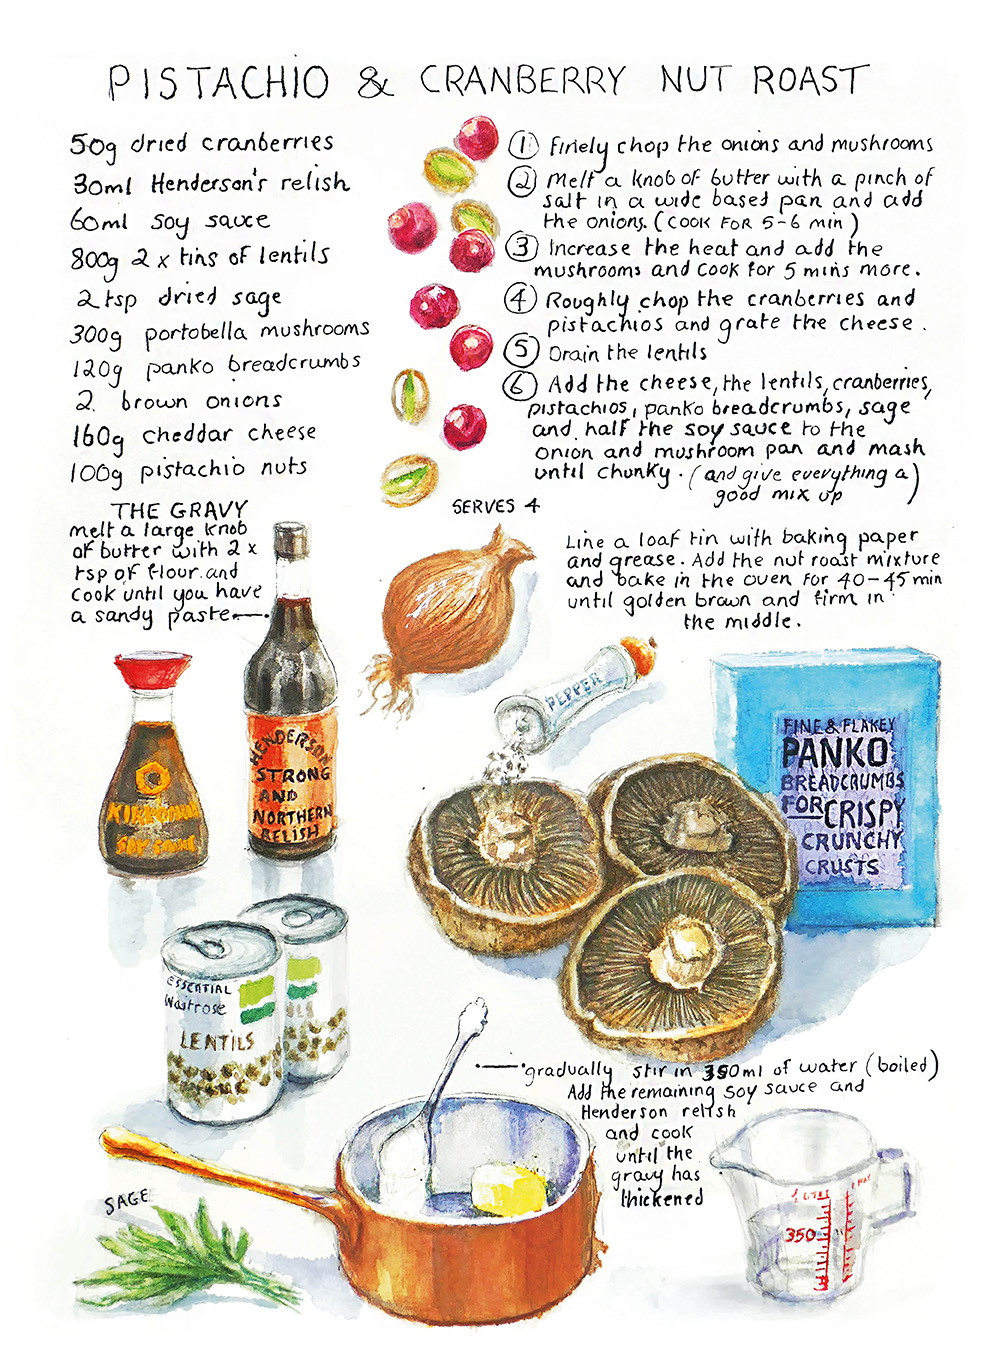 PISTACHIO & CRANBERRY NUT ROAST
50g dried cranberries
30ml Henderson's relish
60ml soy sauce
800g 2 x tins of lentils
2 tsp dried sage
300g portobella mushrooms
120g panko breadcrumbs
2 brown onions
160g cheddar cheese
100g pistachio nuts
① Finely chop the onions and mushrooms
② Melt a knob of butter with a pinch of
salt in a wide based pan and add
the onions. (COOK FOR 5-6 min)
③ Increase the heat and add the
mushrooms and cook for 5 mins more.
④ Roughly chop the cranberries and
pistachios and grate the cheese.
⑤ Drain the lentils
⑥ Add the cheese, the lentils, cranberries,
pistachios, panko breadcrumbs, sage
and half the soy sauce to the
onion and mushroom pan and mash
until chunky. (and give everything a)
good mix up
SERVES 4
Line a loaf tin with baking paper
and grease. Add the nut roast mixture
and bake in the oven for 40-45 min
until golden brown and firm in
the middle.
THE GRAVY
melt a large knob
of butter with 2 x
tsp of flour and
cook until you have
a sandy paste
PEPPER
HENDERSON
STRONG
AND
NORTHERN
RELISH
SOY SAUCE
FINE & FLAKEY
PANKO
BREADCRUMBS
FOR CRISPY
CRUNCHY
CRUSTS
ESSENTIAL
Waitrose
LENTILS
gradually stir in 350ml of water (boiled)
Add the remaining soy sauce and
Henderson relish
and cook
until the
gravy has
thickened
SAGE
350